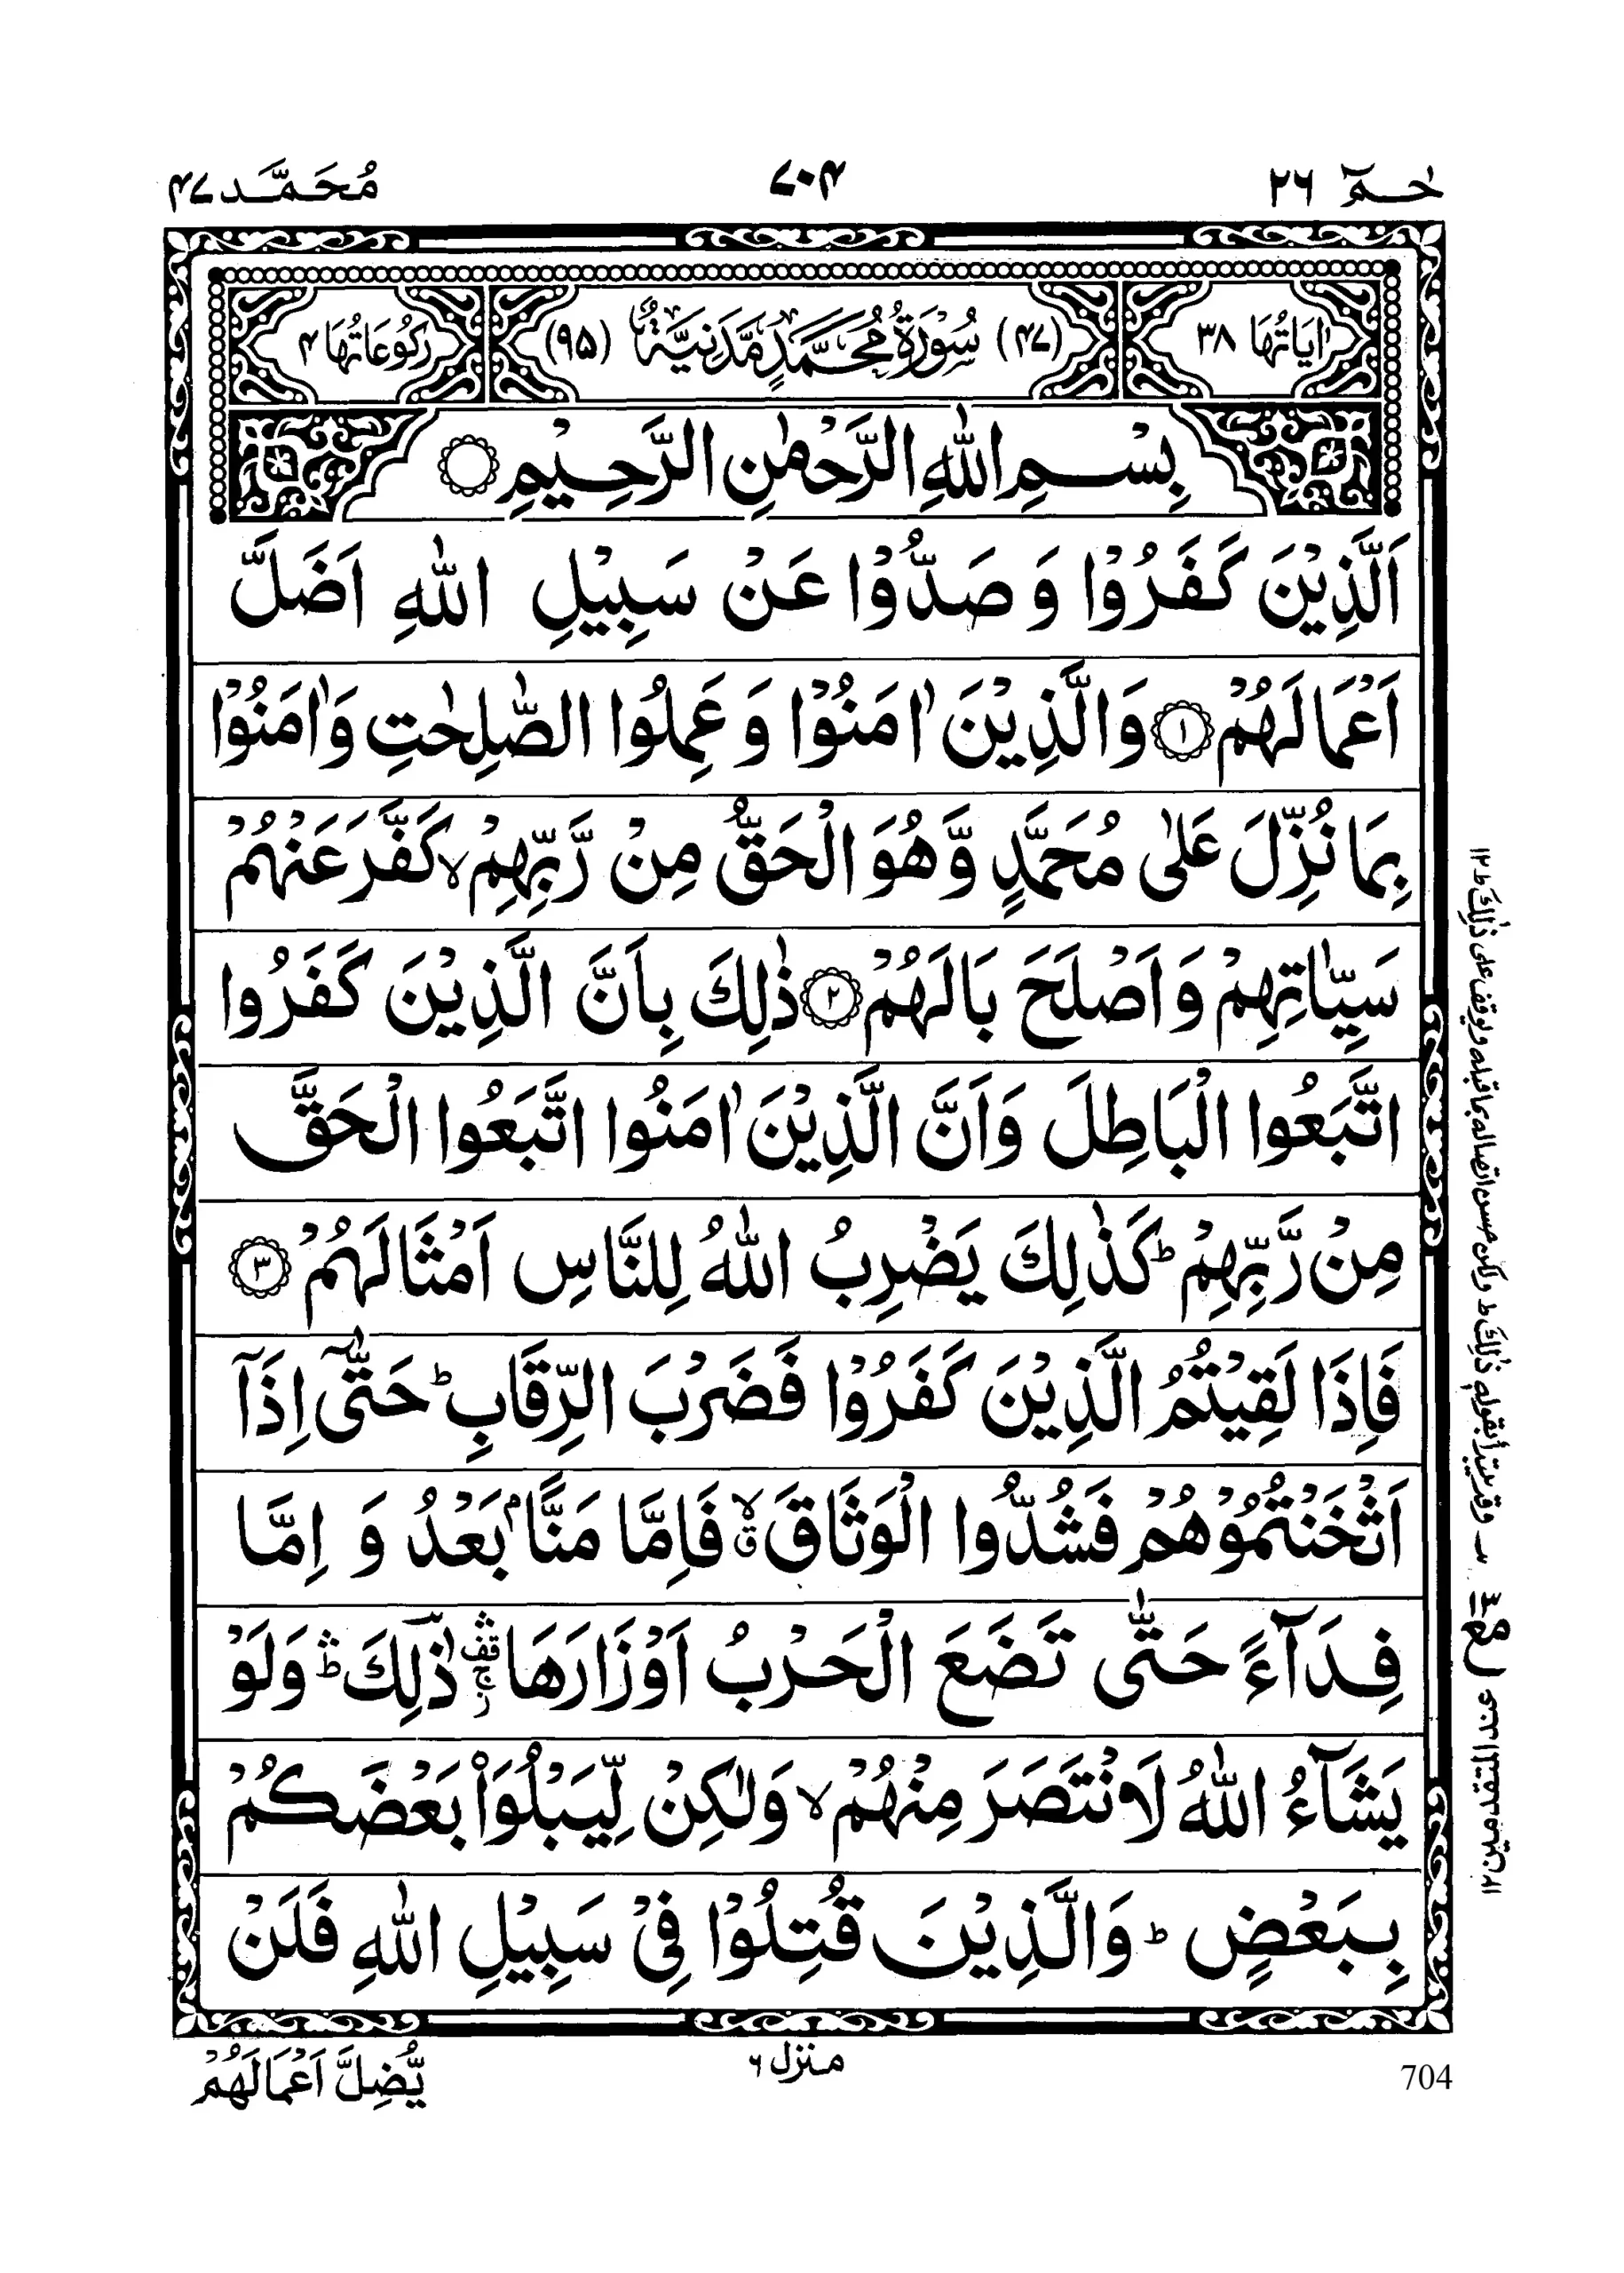 حٰـمٓ ٢٦
٧٠٤
مُحَمَّد ٤٧
اٰيَاتُهَا ٣٨
(٤٧) سُوْرَةُ مُحَمَّدٍ مَّدَنِيَّةٌ (٩٥)
رُكُوْعَاتُهَا ٤
بِسْمِ اللّٰهِ الرَّحْمٰنِ الرَّحِيْمِ ○
اَلَّذِيْنَ كَفَرُوْا وَ صَدُّوْا عَنْ سَبِيْلِ اللّٰهِ اَضَلَّ
اَعْمَالَهُمْ ① وَالَّذِيْنَ اٰمَنُوْا وَ عَمِلُوا الصّٰلِحٰتِ وَاٰمَنُوْا
بِمَا نُزِّلَ عَلٰى مُحَمَّدٍ وَّهُوَ الْحَقُّ مِنْ رَّبِّهِمْ ۙ كَفَّرَ عَنْهُمْ
سَيِّاٰتِهِمْ وَ اَصْلَحَ بَالَهُمْ ② ذٰلِكَ بِاَنَّ الَّذِيْنَ كَفَرُوا
اتَّبَعُوا الْبَاطِلَ وَاَنَّ الَّذِيْنَ اٰمَنُوا اتَّبَعُوا الْحَقَّ
مِنْ رَّبِّهِمْ ؕ كَذٰلِكَ يَضْرِبُ اللّٰهُ لِلنَّاسِ اَمْثَالَهُمْ ③
فَاِذَا لَقِيْتُمُ الَّذِيْنَ كَفَرُوْا فَضَرْبَ الرِّقَابِ ؕ حَتّٰٓى اِذَآ
اَثْخَنْتُمُوْهُمْ فَشُدُّوا الْوَثَاقَ ۙۗ فَاِمَّا مَنًّاۢ بَعْدُ وَ اِمَّا
فِدَآءً حَتّٰى تَضَعَ الْحَرْبُ اَوْزَارَهَا ۛۚ ذٰلِكَ ؕۛ وَلَوْ
يَشَآءُ اللّٰهُ لَانْتَصَرَ مِنْهُمْ ۙ وَلٰكِنْ لِّيَبْلُوَا۟ بَعْضَكُمْ
بِبَعْضٍ ؕ وَالَّذِيْنَ قُتِلُوْا فِيْ سَبِيْلِ اللّٰهِ فَلَنْ
يُّضِلَّ اَعْمَالَهُمْ
منزل ٦
704